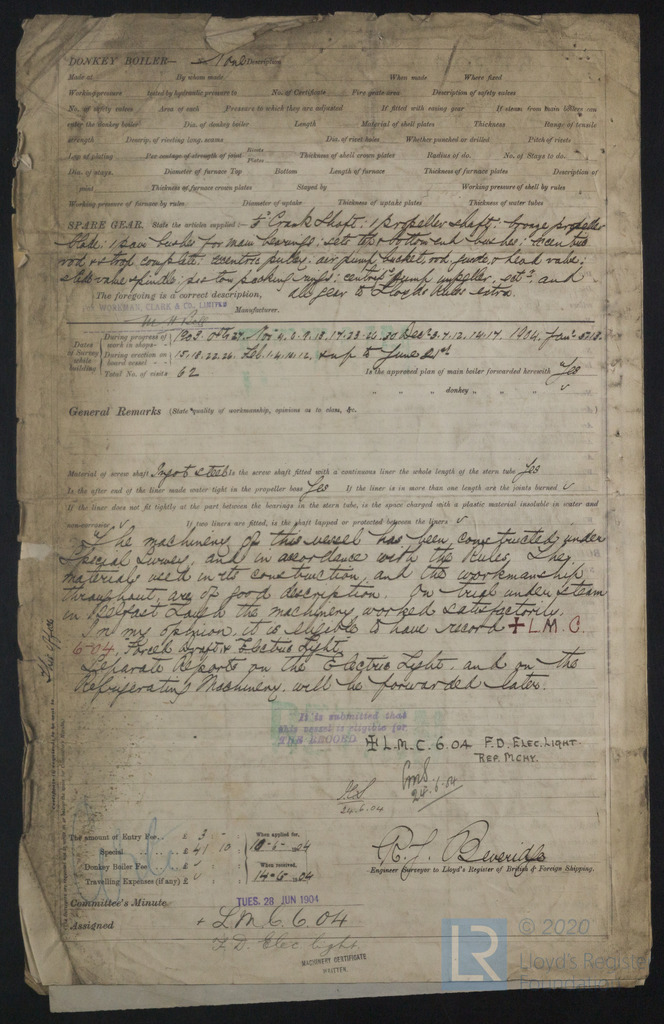 DONKEY BOILER— None Description
Made at By whom made When made Where fixed
Working pressure tested by hydraulic pressure to No. of Certificate Fire grate area Description of safety valves
No. of safety valves Area of each Pressure to which they are adjusted If fitted with easing gear If steam from main boilers can
enter the donkey boiler Dia. of donkey boiler Length Material of shell plates Thickness Range of tensile
strength Descrip. of riveting long. seams Dia. of rivet holes Whether punched or drilled Pitch of rivets
Lap of plating Per centage of strength of joint Rivets Plates Thickness of shell crown plates Radius of do. No. of Stays to do.
Dia. of stays. Diameter of furnace Top Bottom Length of furnace Thickness of furnace plates Description of
joint Thickness of furnace crown plates Stayed by Working pressure of shell by rules
Working pressure of furnace by rules Diameter of uptake Thickness of uptake plates Thickness of water tubes
SPARE GEAR. State the articles supplied:— Crank Shaft: 1 propeller shaft: bronze propeller
blade: 1 pair bushes for main bearings: sets top & bottom end bushes:
rod & strap complete: eccentric pulley: air pump bucket rod, guide, & head valve:
slide valve spindle: piston packing rings: pump impeller, and
The foregoing is a correct description, all gear to Lloyds Rules extra.
WORKMAN, CLARK & CO., LIMITED
Manufacturer.
Dates of Survey while building
During progress of work in shops— 1903. Oct 27. Nov 4.6.9.13.17.23.26.30 Decr 3.7.12.14.17. 1904. Jany 5.7.13.
During erection on board vessel— 15.18.22.26. Feb. 1.4.11.12, & up to June 21st
Total No. of visits 62 Is the approved plan of main boiler forwarded herewith Yes
" " " donkey " " " ✓
General Remarks (State quality of workmanship, opinions as to class, &c.
Material of screw shaft Ingot steel Is the screw shaft fitted with a continuous liner the whole length of the stern tube Yes
Is the after end of the liner made water tight in the propeller boss Yes If the liner is in more than one length are the joints burned ✓
If the liner does not fit tightly at the part between the bearings in the stern tube, is the space charged with a plastic material insoluble in water and
non-corrosive ✓ If two liners are fitted, is the shaft lapped or protected between the liners ✓
The machinery of this vessel has been constructed under
Special Survey, and in accordance with the Rules, The
materials used in its construction, and the workmanship
throughout, are of good description. On trial under steam
in Belfast Lough the machinery worked satisfactorily.
In my opinion, it is eligible to have record ✠ L.M.C.
6-04, Forced draft & Electric Light.
Separate Reports on the Electric Light, and on the
Refrigerating Machinery, will be forwarded later.
It is submitted that
this vessel is eligible for
THE RECORD ✠ L.M.C. 6.04 F.D. ELEC. LIGHT.
REF. MCHY.
24.6.04
24.6.04
The amount of Entry Fee.. £ 3 : - : When applied for,
Special .. £ 41 : 10 : 10-6-04
Donkey Boiler Fee .. £ When received,
Travelling Expenses (if any) £ 14-6-04
R. J. Beveridge
Engineer Surveyor to Lloyd's Register of British & Foreign Shipping.
Committee's Minute TUES. 28 JUN 1904
Assigned + LMC 6.04
F.D. Elec light.
MACHINERY CERTIFICATE
WRITTEN.
LR © 2020
Lloyd's Register
Foundation